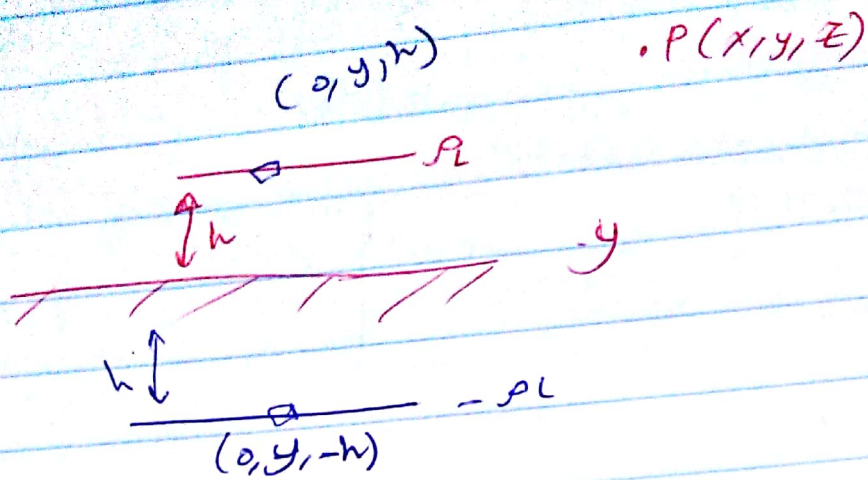 (0, y, h)
. P(x, y, z)
ρL
h
y
h
- ρL
(0, y, -h)